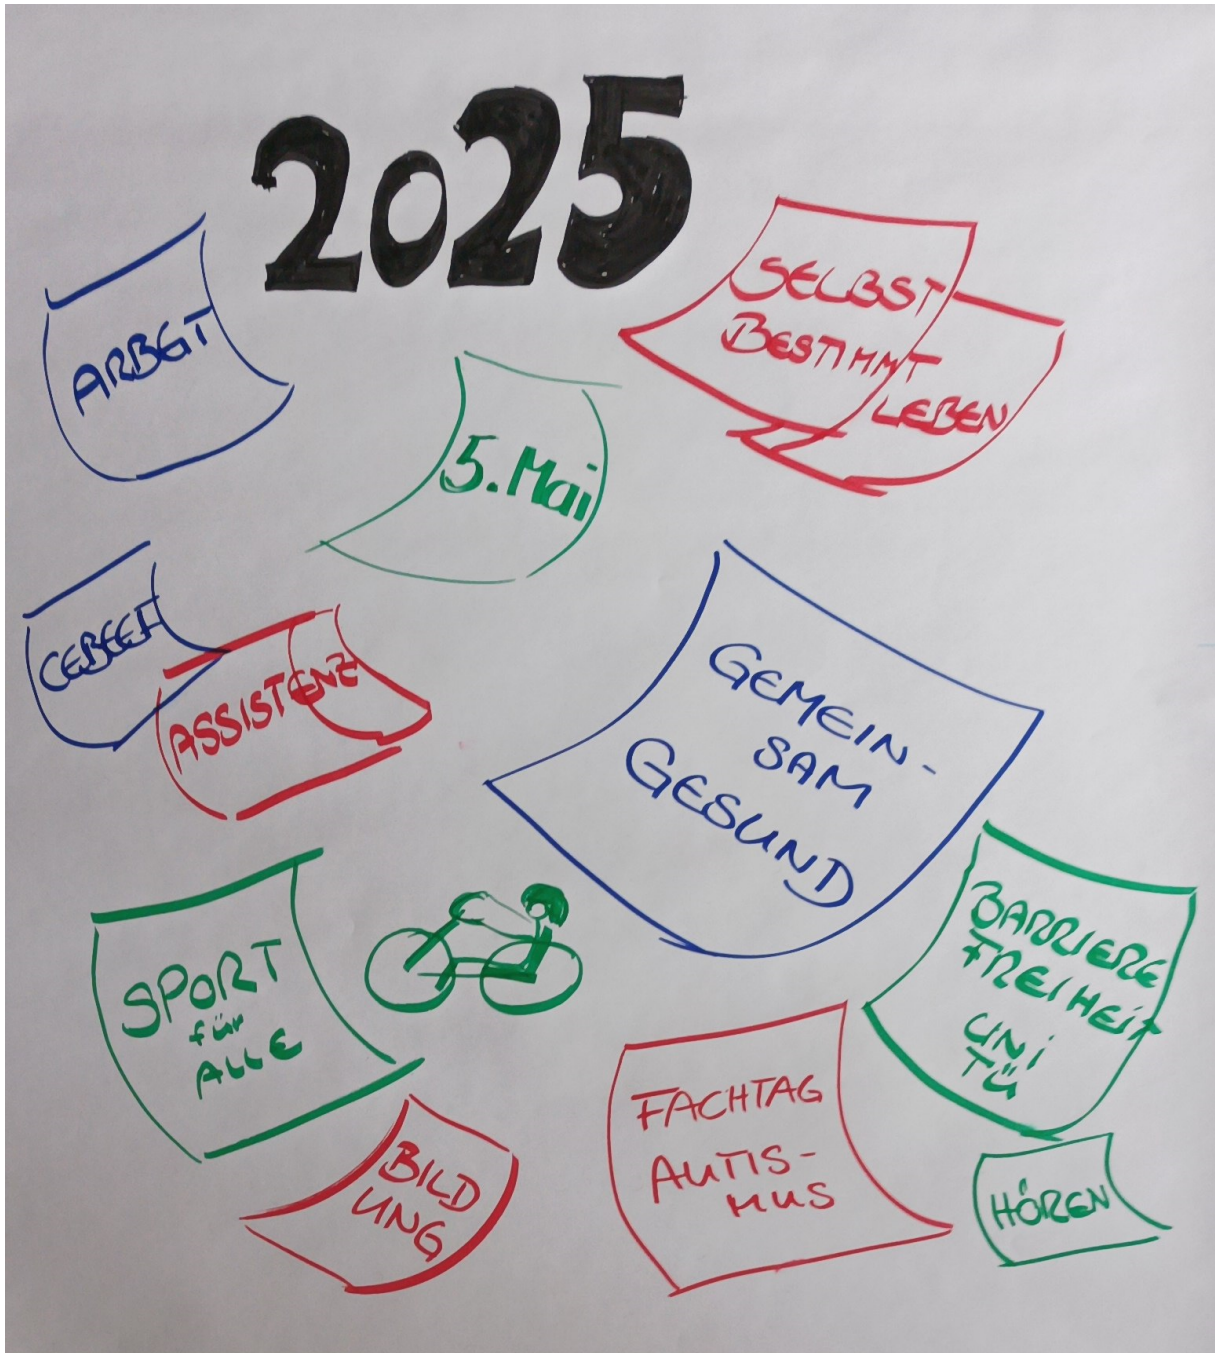 2025
ARBEIT
SELBST
BESTIMMT
LEBEN
5. Mai
CEBEEF
ASSISTENZ
GEMEIN-
SAM
GESUND
SPORT
für
ALLE
BARRIERE
FREIHEIT
UNI
TÜ
BILD
UNG
FACHTAG
AUTIS-
MUS
HÖREN